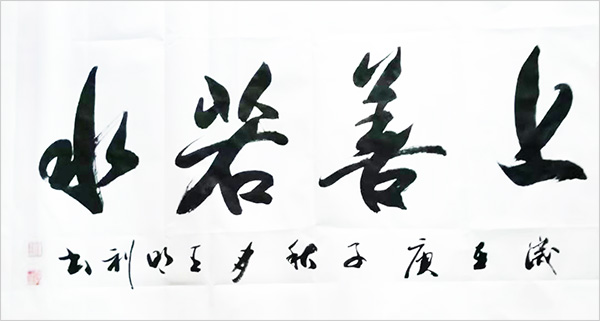 上善若水
歲在庚子秋月王明利书